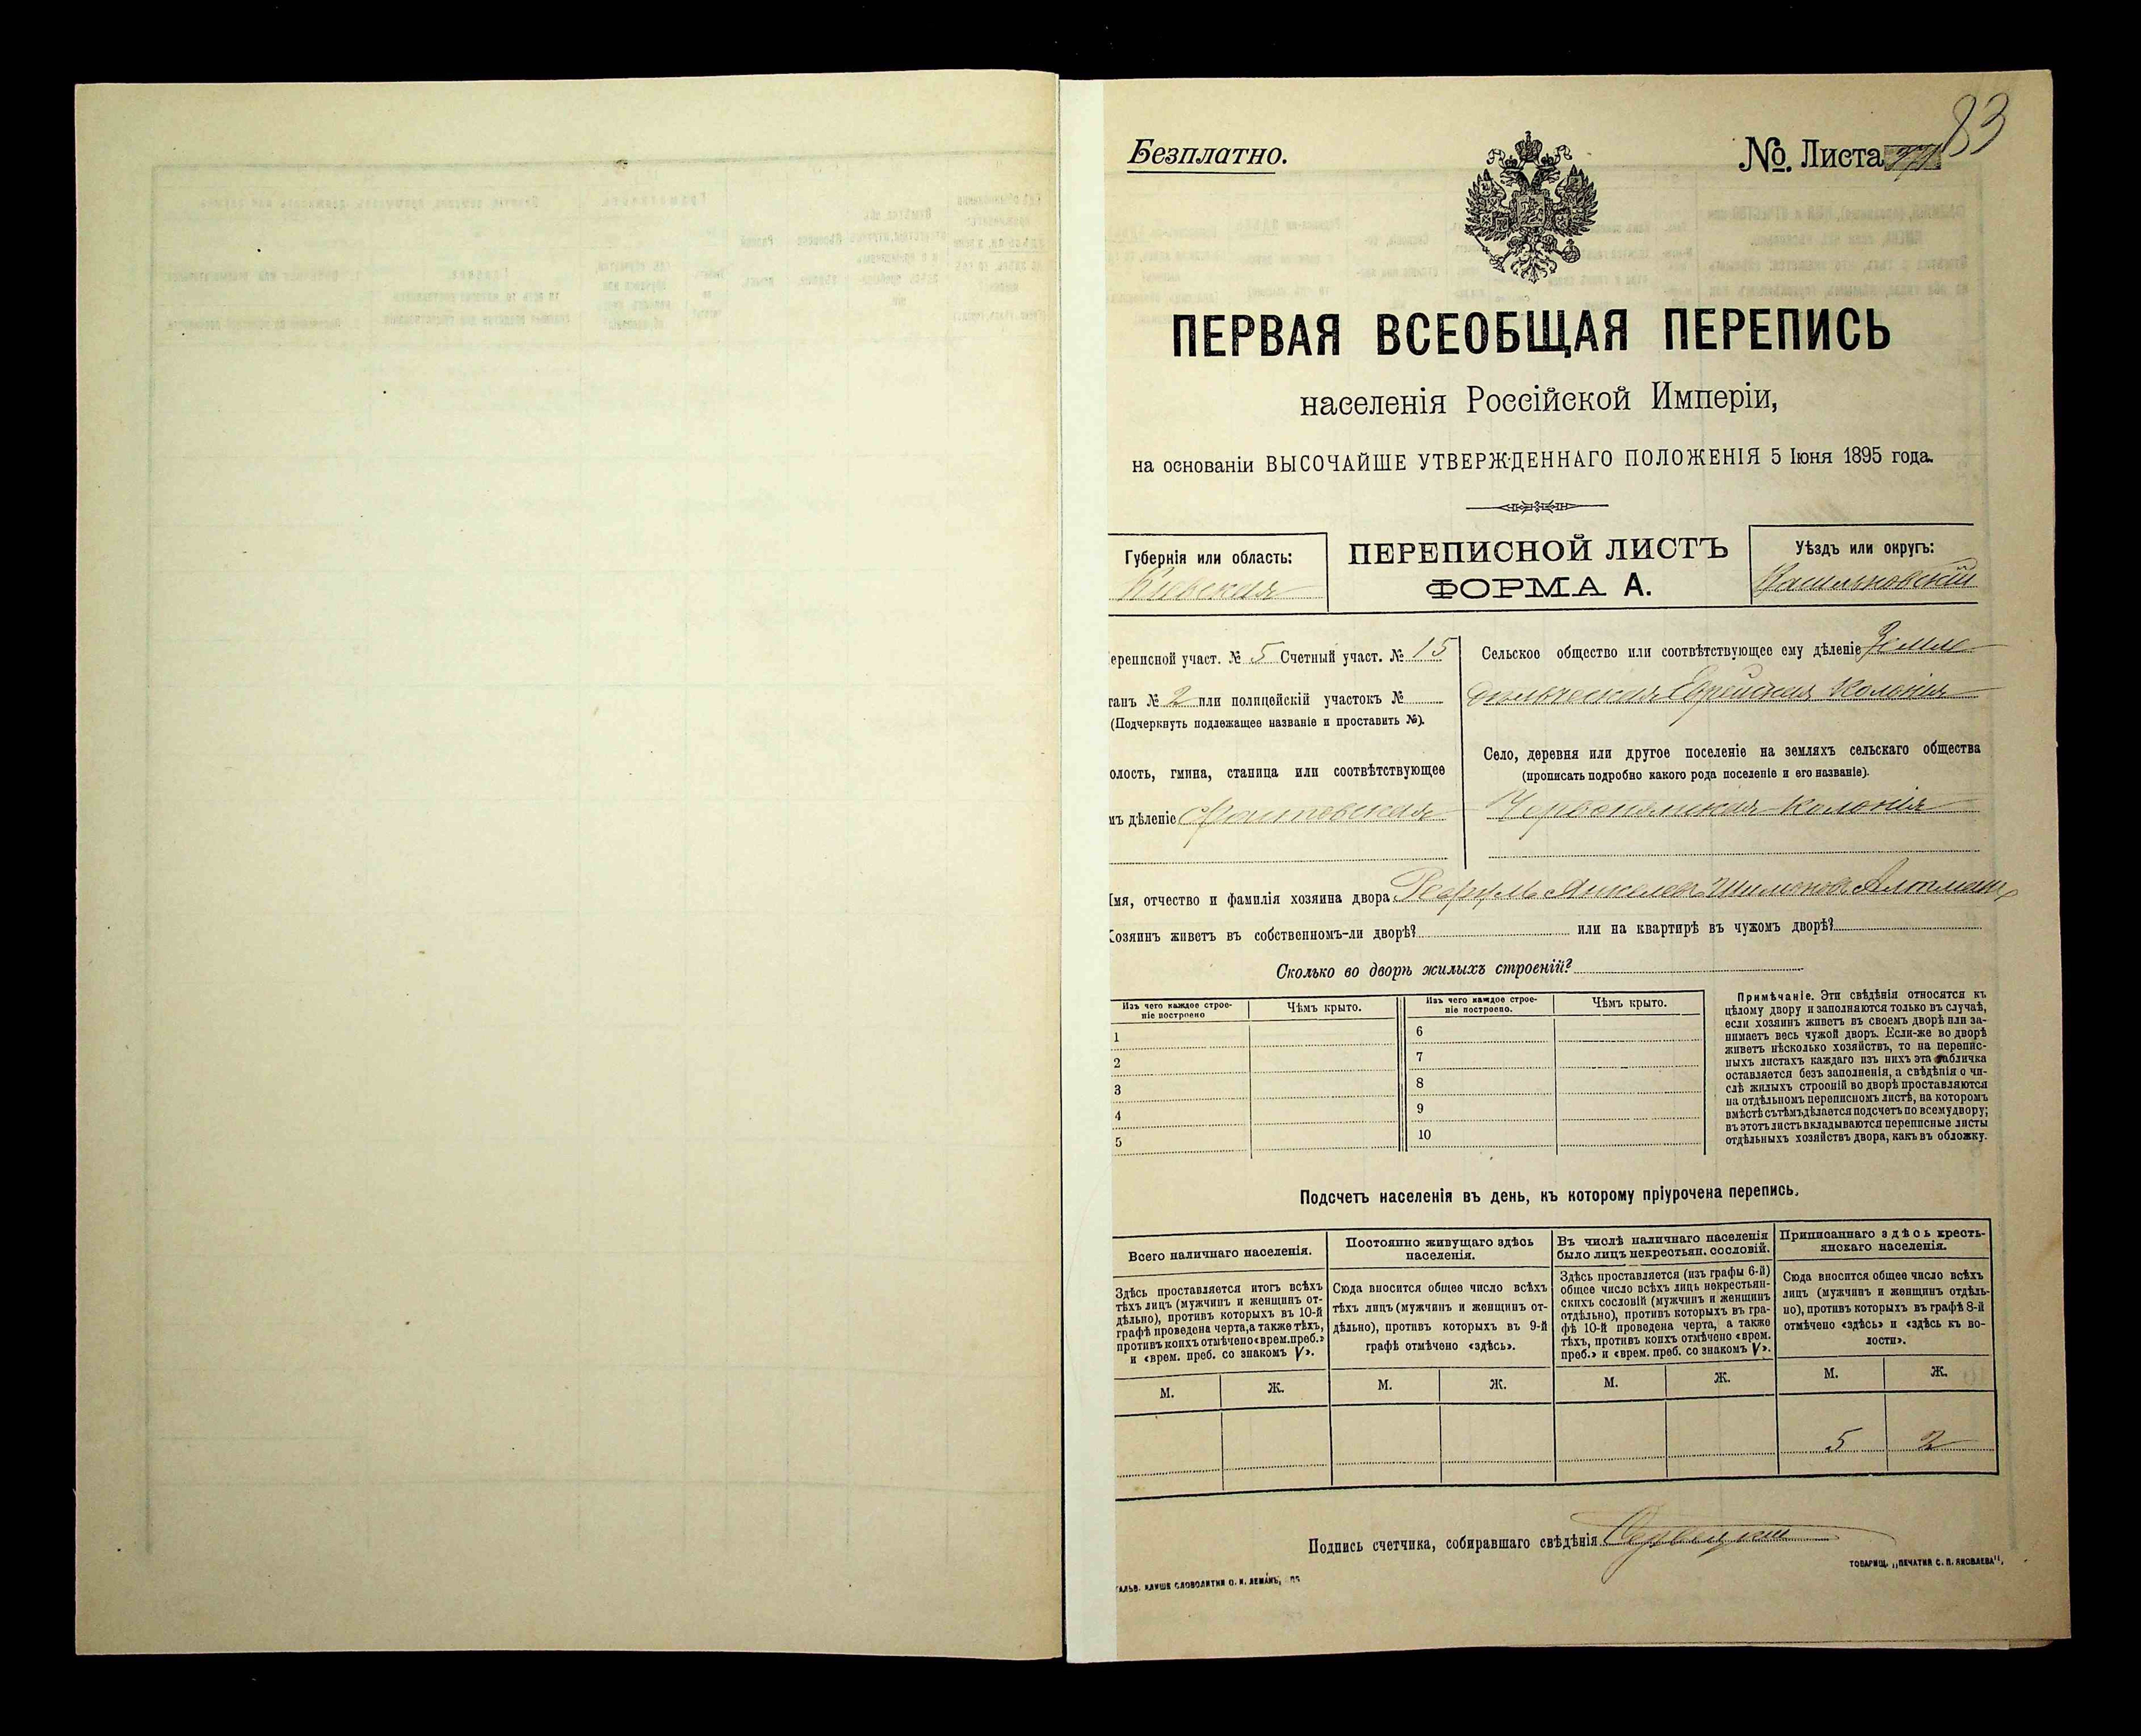 83
Безплатно.
№ Листа
ПЕРВАЯ ВСЕОБЩАЯ ПЕРЕПИСЬ
населенія Россійской Имперіи,
на основаніи ВЫСОЧАЙШЕ УТВЕРЖДЕННАГО ПОЛОЖЕНІЯ 5 Іюня 1895 года.
Губернія или область:
Кіевская
ПЕРЕПИСНОЙ ЛИСТЪ
ФОРМА А.
Уѣздъ или округъ:
Васильковскій
ереписной участ. № 5 Счетный участ. № 15
танъ № 2 или полицейскій участокъ №
(Подчеркнуть подлежащее названіе и проставить №).
олость, гмина, станица или соотвѣтствующее
мъ дѣленіе
Сельское общество или соотвѣтствующее ему дѣленіе Земле
дѣльческая Еврейская Колонія
Село, деревня или другое поселеніе на земляхъ сельскаго общества
(прописать подробно какого рода поселеніе и его названіе).
Червонянская колонія
мя, отчество и фамилія хозяина двора Шлиомовъ Альтманъ
озяинъ живетъ въ собственномъ-ли дворѣ? или на квартирѣ въ чужомъ дворѣ?
Сколько во дворѣ жилыхъ строеній?
Изъ чего каждое строе-
ніе построено
Чѣмъ крыто.
Изъ чего каждое строе-
ніе построено.
Чѣмъ крыто.
1
2
3
4
5
6
7
8
9
10
Примѣчаніе. Эти свѣдѣнія относятся къ
цѣлому двору и заполняются только въ случаѣ,
если хозяинъ живетъ въ своемъ дворѣ или за-
нимаетъ весь чужой дворъ. Если-же во дворѣ
живетъ нѣсколько хозяйствъ, то на перепис-
ныхъ листахъ каждаго изъ нихъ эта табличка
оставляется безъ заполненія, а свѣдѣнія о чи-
слѣ жилыхъ строеній во дворѣ проставляются
на отдѣльномъ переписномъ листѣ, на которомъ
вмѣстѣ съ тѣмъ дѣлается подсчетъ по всему двору;
въ этотъ листъ вкладываются переписные листы
отдѣльныхъ хозяйствъ двора, какъ въ обложку.
Подсчетъ населенія въ день, къ которому пріурочена перепись.
Всего наличнаго населенія.
Здѣсь проставляется итогъ всѣхъ
тѣхъ лицъ (мужчинъ и женщинъ от-
дѣльно), противъ которыхъ въ 10-й
графѣ проведена черта, а также тѣхъ,
противъ коихъ отмѣчено «врем. преб.»
и «врем. преб. со знакомъ V».
Постоянно живущаго здѣсь
населенія.
Сюда вносится общее число всѣхъ
тѣхъ лицъ (мужчинъ и женщинъ от-
дѣльно), противъ которыхъ въ 9-й
графѣ отмѣчено «здѣсь».
Въ числѣ наличнаго населенія
было лицъ некрестьян. сословій.
Здѣсь проставляется (изъ графы 6-й)
общее число всѣхъ лицъ некрестьян-
скихъ сословій (мужчинъ и женщинъ
отдѣльно), противъ которыхъ въ гра-
фѣ 10-й проведена черта, а также
тѣхъ, противъ коихъ отмѣчено «врем.
преб.» и «врем. преб. со знакомъ V».
Приписаннаго здѣсь кресть-
янскаго населенія.
Сюда вносится общее число всѣхъ
лицъ (мужчинъ и женщинъ отдѣль-
но), противъ которыхъ въ графѣ 8-й
отмѣчено «здѣсь» и «здѣсь къ во-
лости».
М. Ж. М. Ж. М. Ж. М. Ж.
5 2
Подпись счетчика, собиравшаго свѣдѣнія
ТОВАРИЩ. „ПЕЧАТНЯ С. П. ЯКОВЛЕВА",
ГАЛЬВ. КЛИШЕ СЛОВОЛИТНИ О. И. ЛЕМАНЪ,